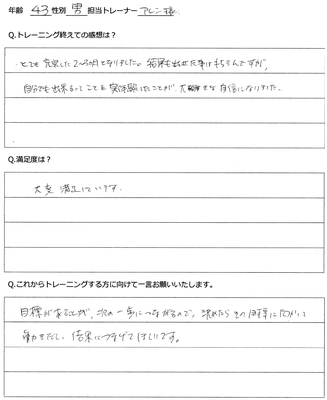 年齢 43 性別 男 担当トレーナー アレン様
Q.トレーニング終えての感想は？
とても充実した2〜3ヶ月となりました。結果も出せた事はもちろんですが、
自分でも出来るってことを実体験したことが、大きな自信になりました。
Q.満足度は？
大変 満足しています。
Q.これからトレーニングする方に向けて一言お願いいたします。
目標があることが、次の一歩につながるので、決めたらその目標に向かって
動き出し、結果につなげてほしいです。